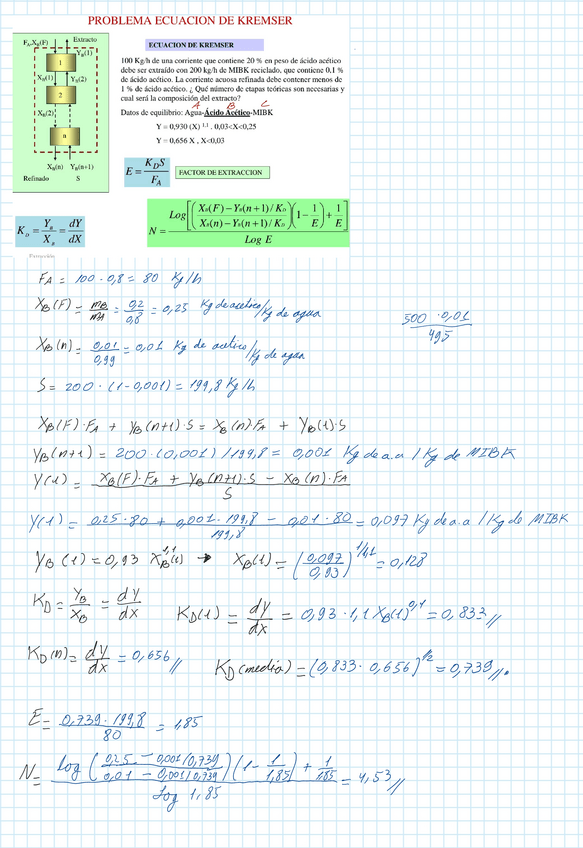 PROBLEMA ECUACION DE KREMSER
F_A, X_B(F)
Extracto
Y_B(1)
1
X_B(1) Y_B(2)
2
X_B(2)
n
X_B(n) Y_B(n+1)
Refinado S
ECUACION DE KREMSER
100 Kg/h de una corriente que contiene 20 % en peso de ácido acético
debe ser extraído con 200 kg/h de MIBK reciclado, que contiene 0,1 %
de ácido acético. La corriente acuosa refinada debe contener menos de
1 % de ácido acético. ¿ Qué número de etapas teóricas son necesarias y
cual será la composición del extracto?
A B C
Datos de equilibrio: Agua-Ácido Acético-MIBK
Y = 0,930 (X) ^1,1 . 0,03<X<0,25
Y = 0,656 X , X<0,03
E = K_D S / F_A
FACTOR DE EXTRACCION
K_D = Y_B / X_B = dY / dX
N = Log[((X_B(F) − Y_B(n+1)/K_D) / (X_B(n) − Y_B(n+1)/K_D))(1 − 1/E) + 1/E] / Log E
Extracción
F_A = 100 · 0,8 = 80 Kg/h
X_B(F) = m_B/m_A = 0,2/0,8 = 0,25 Kg de acetico/Kg de agua
500 · 0,01 / 495
X_B(n) = 0,01/0,99 = 0,01 Kg de acetico/Kg de agua
S = 200 · (1-0,001) = 199,8 Kg/h
X_B(F)·F_A + Y_B(n+1)·S = X_B(n)·F_A + Y_B(1)·S
Y_B(n+1) = 200·(0,001)/199,8 = 0,001 Kg de a.a / Kg de MIBK
Y(1) = X_B(F)·F_A + Y_B(n+1)·S − X_B(n)·F_A / S
Y(1) = 0,25·80 + 0,001·199,8 − 0,01·80 / 199,8 = 0,097 Kg de a.a / Kg de MIBK
Y_B(1) = 0,93 X_B^1,1(1) → X_B(1) = (0,097/0,93)^1/1,1 = 0,128
K_D = Y_B/X_B = dY/dX K_D(1) = dY/dX = 0,93 · 1,1 X_B(1)^0,1 = 0,833 //
K_D(n) = dY/dX = 0,656 // K_D(media) = (0,833 · 0,656)^1/2 = 0,739 //.
E = 0,739 · 199,8 / 80 = 1,85
N = log (0,25 − 0,001/0,739 / 0,01 − 0,001/0,739)(1 − 1/1,85) + 1/1,85 / log 1,85 = 4,53 //